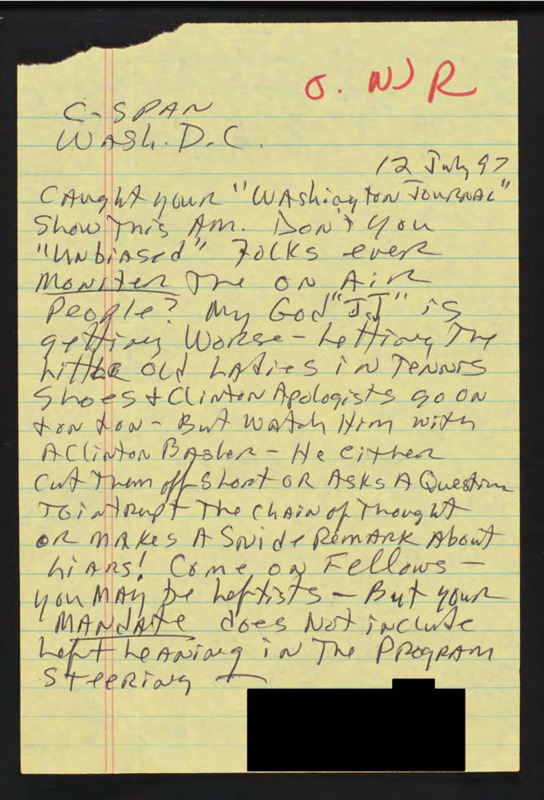 O. NJR
C-SPAN
WASh. D.C.
12 July 97
CAught your "WAShington JOURNAL"
Show This AM. Don't you
"UNbiased" FOLKS ever
MONiTER The ON AiR
People? My God "JJ" is
getting WORSe - Letting The
Little OLd LAdies iN TeNNiS
Shoes & CLiNtoN Apologists go ON
& on & on - But WAtch Him with
A CliNtoN BASher - He either
Cut Them off Short OR ASks A Question
To intrupt The ChAiN of Thought
OR MAKes A SNide ReMARK About
LiARS! Come on Fellows -
you MAy be Leftists - But your
MANdAte does Not include
Left LeANiNg iN The PROgRAM
STeeRiNg -